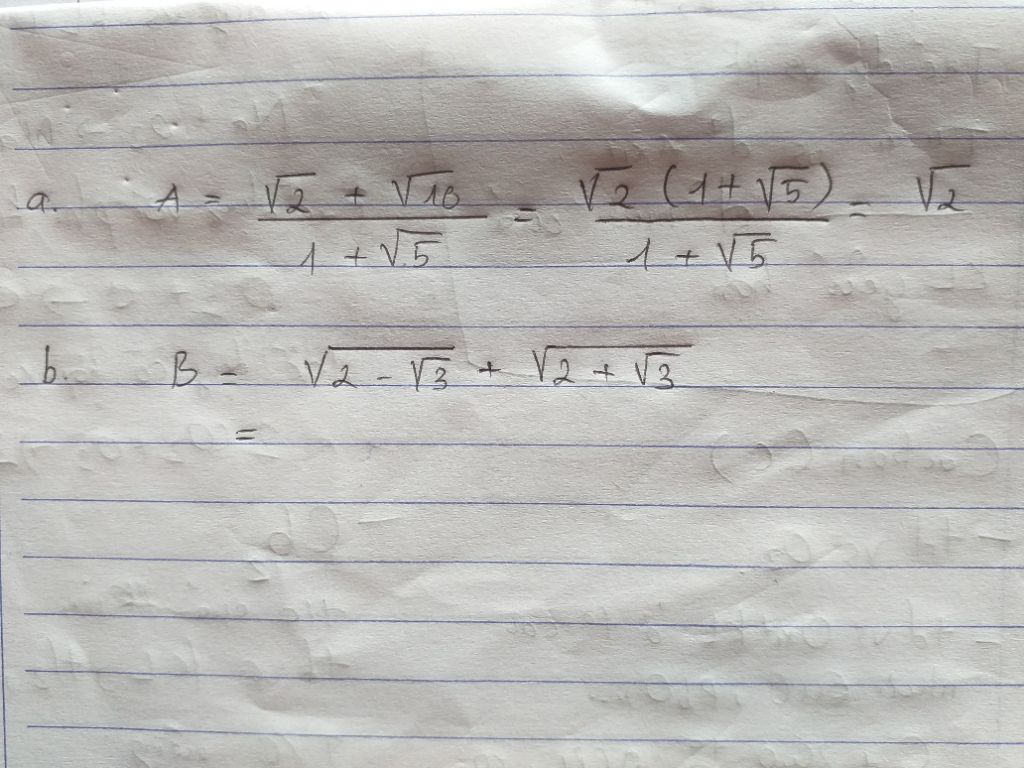 a. A = (√2 + √10)/(1 + √5) = (√2 (1 + √5))/(1 + √5) = √2
b. B = √(2 - √3) + √(2 + √3)
=